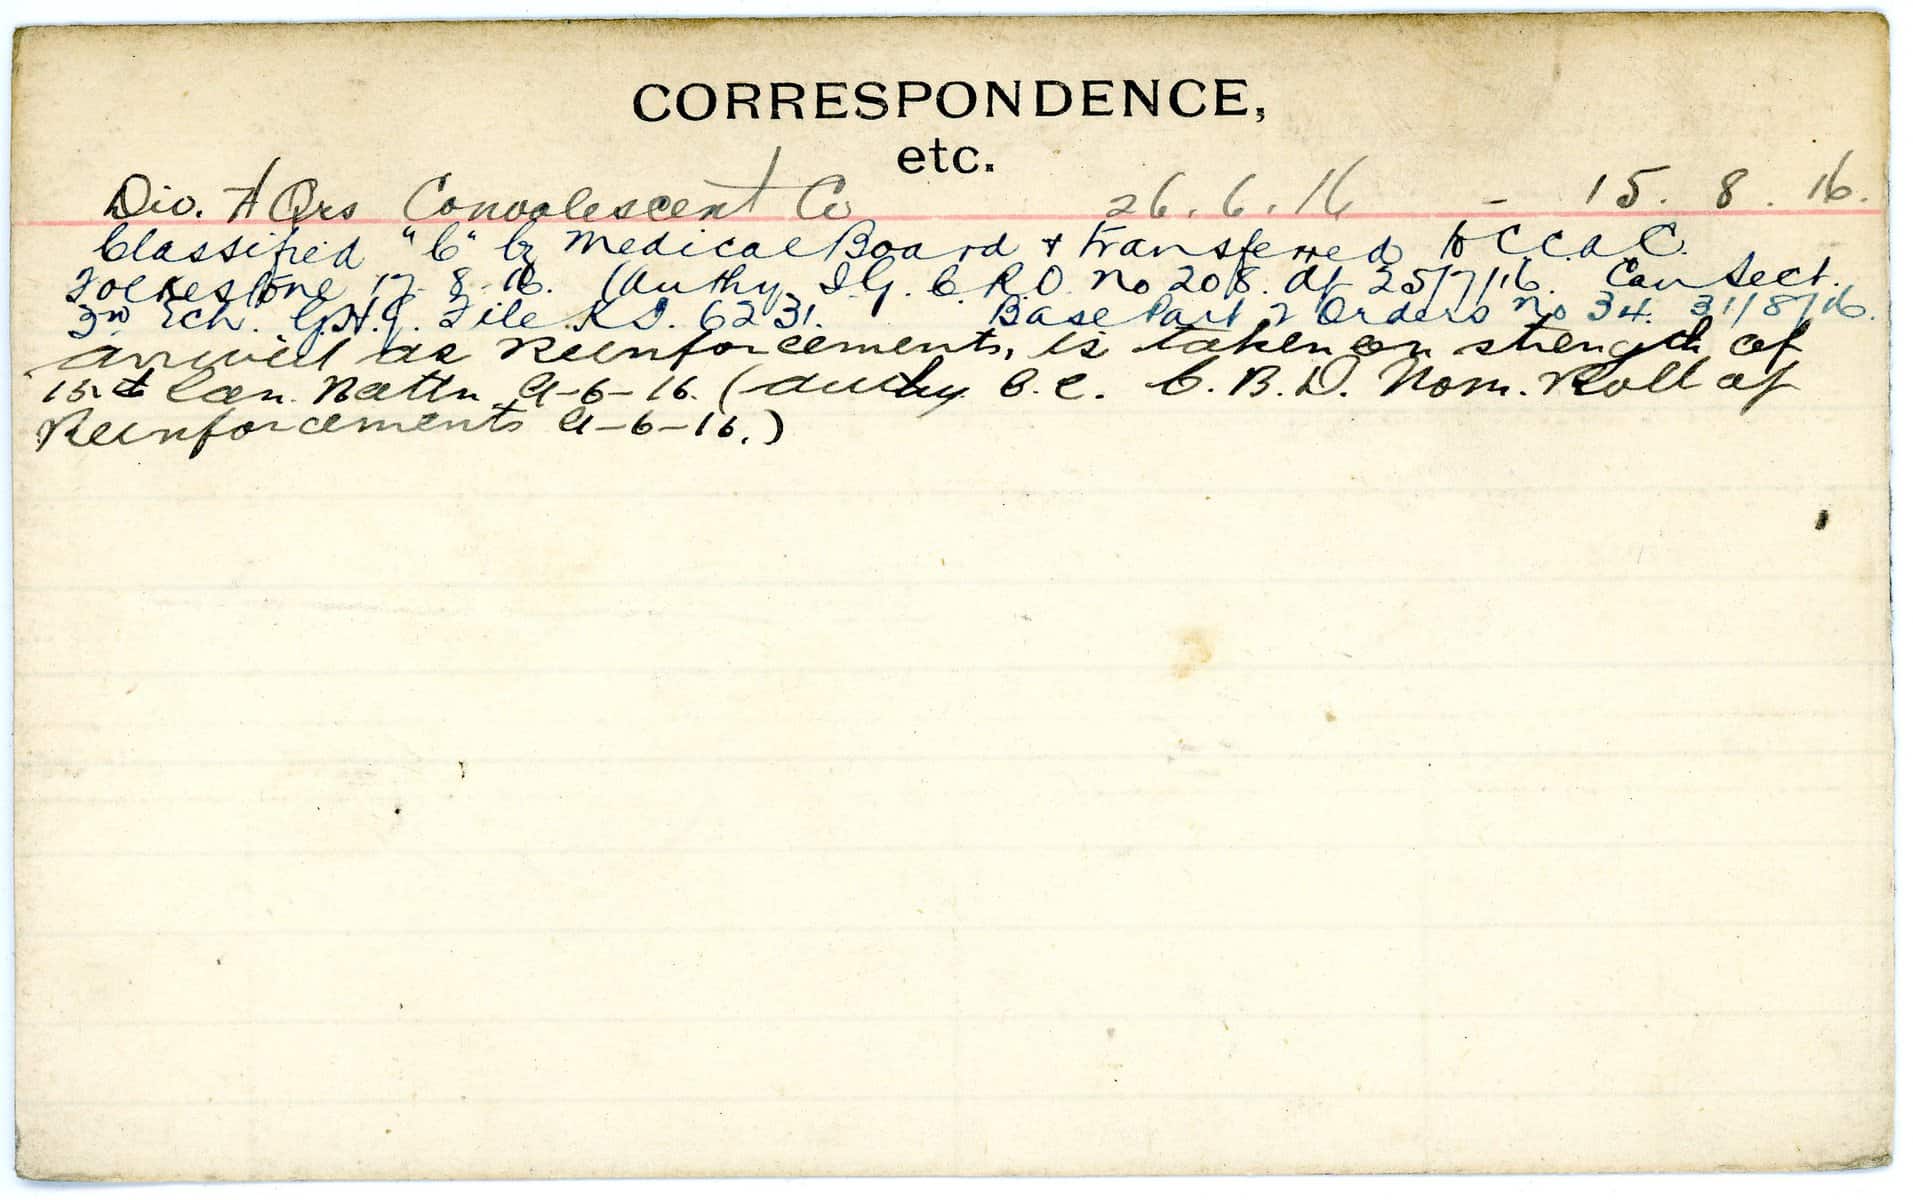 CORRESPONDENCE,
etc.
Div. H Qrs Convalescent Co 26.6.16 - 15.8.16.
Classified "C" by Medical Board & transferred to C.C.A.C.
Folkestone 17-8-16. (Authy I.G.C. R.O. No 208. dt 25/7/16. Can Sect.
3rd Ech. G.H.Q. File 6231. Base Part 2 Orders No 34. 31/8/16.
arrived as Reinforcements, is taken on strength of
15th Can. Battn 9-6-16. (authy O.C. C.B.D. Nom. Roll of
Reinforcements 9-6-16.)